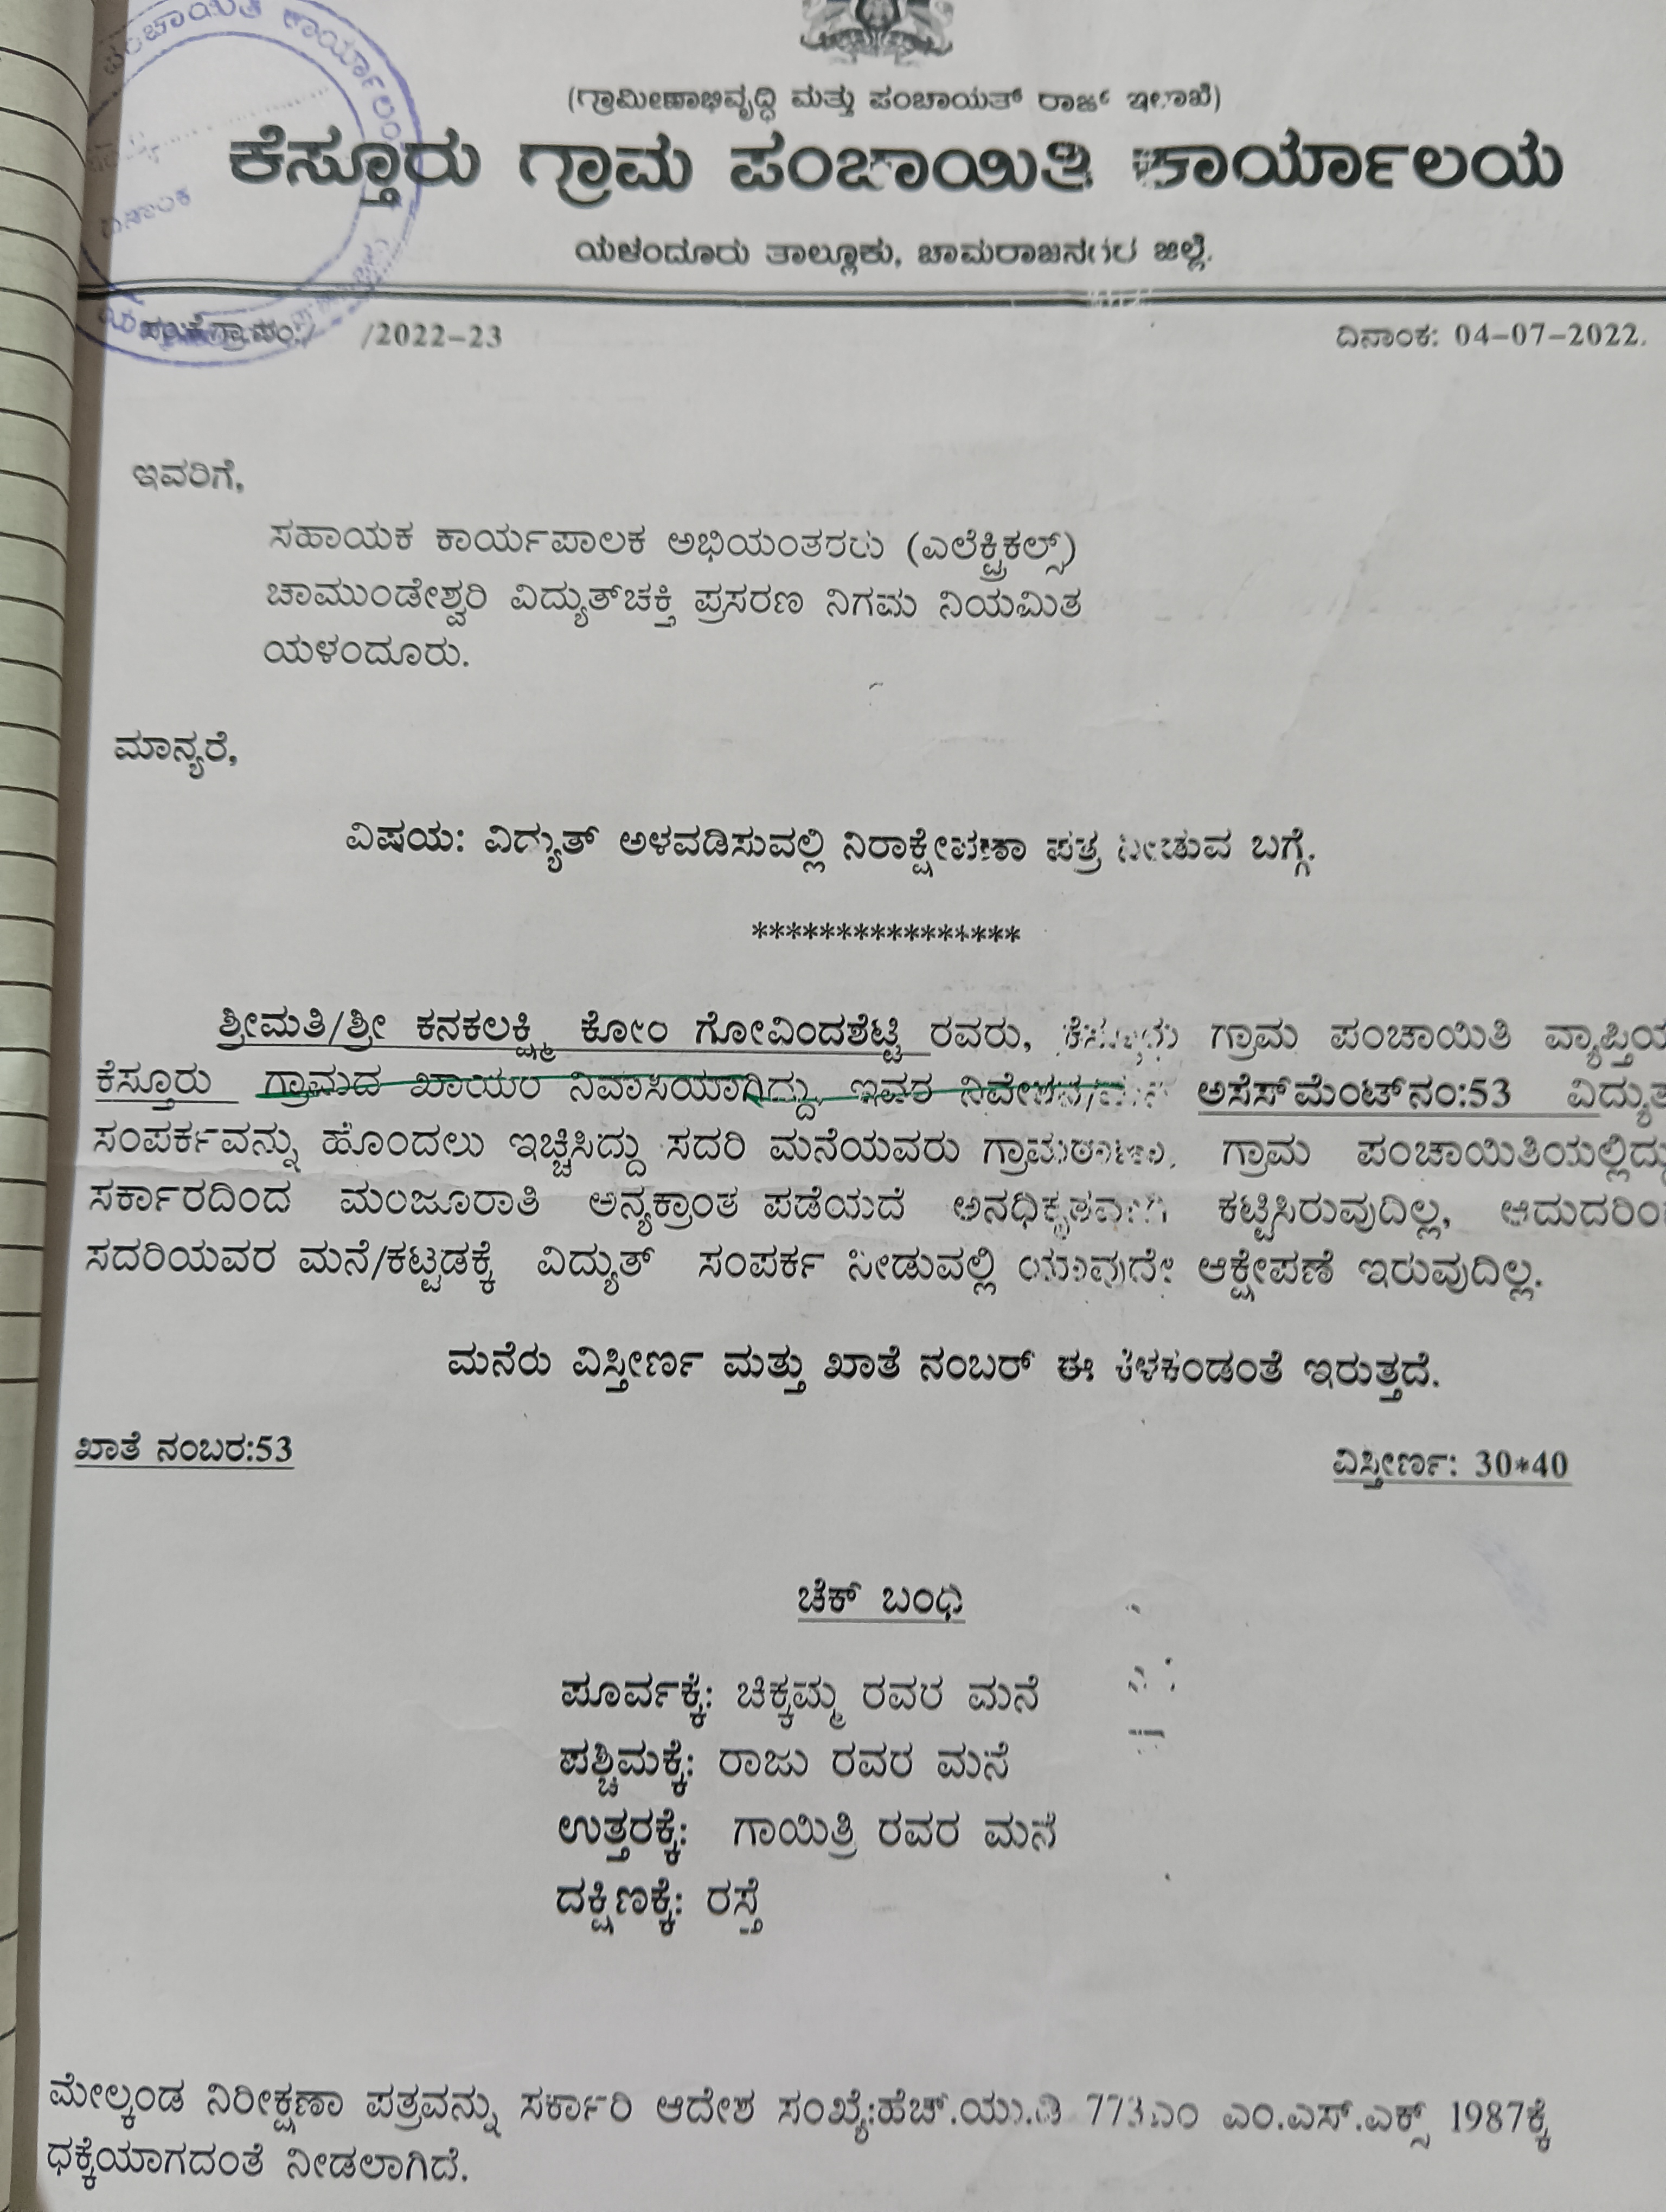 ಪಂಚಾಯಿತಿ ಕಾರ್ಯಾಲಯ
ದಿನಾಂಕ
(ಗ್ರಾಮೀಣಾಭಿವೃದ್ಧಿ ಮತ್ತು ಪಂಚಾಯತ್ ರಾಜ್ ಇಲಾಖೆ)
ಕೆಸ್ತೂರು ಗ್ರಾಮ ಪಂಚಾಯಿತಿ ಕಾರ್ಯಾಲಯ
ಯಳಂದೂರು ತಾಲ್ಲೂಕು, ಚಾಮರಾಜನಗರ ಜಿಲ್ಲೆ.
/2022-23 ದಿನಾಂಕ: 04-07-2022.
ಇವರಿಗೆ,
ಸಹಾಯಕ ಕಾರ್ಯಪಾಲಕ ಅಭಿಯಂತರರು (ಎಲೆಕ್ಟ್ರಿಕಲ್ಸ್)
ಚಾಮುಂಡೇಶ್ವರಿ ವಿದ್ಯುತ್‌ಚಕ್ತಿ ಪ್ರಸರಣ ನಿಗಮ ನಿಯಮಿತ
ಯಳಂದೂರು.
ಮಾನ್ಯರೆ,
ವಿಷಯ: ವಿದ್ಯುತ್ ಅಳವಡಿಸುವಲ್ಲಿ ನಿರಾಕ್ಷೇಪಣಾ ಪತ್ರ ನೀಡುವ ಬಗ್ಗೆ.
****************
ಶ್ರೀಮತಿ/ಶ್ರೀ ಕನಕಲಕ್ಷ್ಮಿ ಕೋಂ ಗೋವಿಂದಶೆಟ್ಟಿ ರವರು, ಕೆಸ್ತೂರು ಗ್ರಾಮ ಪಂಚಾಯಿತಿ ವ್ಯಾಪ್ತಿಯ
ಕೆಸ್ತೂರು ಗ್ರಾಮದ ಖಾಯಂ ನಿವಾಸಿಯಾಗಿದ್ದು, ಇವರ ನಿವೇಶನ/ ಅಸೆಸ್‌ಮೆಂಟ್‌ನಂ:53 ವಿದ್ಯುತ್
ಸಂಪರ್ಕವನ್ನು ಹೊಂದಲು ಇಚ್ಚಿಸಿದ್ದು ಸದರಿ ಮನೆಯವರು ಗ್ರಾಮಠಾಣಾ, ಗ್ರಾಮ ಪಂಚಾಯಿತಿಯಲ್ಲಿದ್ದು
ಸರ್ಕಾರದಿಂದ ಮಂಜೂರಾತಿ ಅನ್ಯಕ್ರಾಂತ ಪಡೆಯದೆ ಅನಧಿಕೃತವಾಗಿ ಕಟ್ಟಿಸಿರುವುದಿಲ್ಲ, ಆದುದರಿಂದ
ಸದರಿಯವರ ಮನೆ/ಕಟ್ಟಡಕ್ಕೆ ವಿದ್ಯುತ್ ಸಂಪರ್ಕ ನೀಡುವಲ್ಲಿ ಯಾವುದೇ ಆಕ್ಷೇಪಣೆ ಇರುವುದಿಲ್ಲ.
ಮನೆರು ವಿಸ್ತೀರ್ಣ ಮತ್ತು ಖಾತೆ ನಂಬರ್ ಈ ಕೆಳಕಂಡಂತೆ ಇರುತ್ತದೆ.
ಖಾತೆ ನಂಬರ:53 ವಿಸ್ತೀರ್ಣ: 30*40
ಚೆಕ್ ಬಂಧಿ
ಪೂರ್ವಕ್ಕೆ: ಚಿಕ್ಕಮ್ಮ ರವರ ಮನೆ
ಪಶ್ಚಿಮಕ್ಕೆ: ರಾಜು ರವರ ಮನೆ
ಉತ್ತರಕ್ಕೆ: ಗಾಯಿತ್ರಿ ರವರ ಮನೆ
ದಕ್ಷಿಣಕ್ಕೆ: ರಸ್ತೆ
ಮೇಲ್ಕಂಡ ನಿರೀಕ್ಷಣಾ ಪತ್ರವನ್ನು ಸರ್ಕಾರಿ ಆದೇಶ ಸಂಖ್ಯೆ:ಹೆಚ್.ಯು.ಡಿ 773ಎಂ ಎಂ.ಎಸ್.ಎಕ್ಸ್ 1987ಕ್ಕೆ
ಧಕ್ಕೆಯಾಗದಂತೆ ನೀಡಲಾಗಿದೆ.